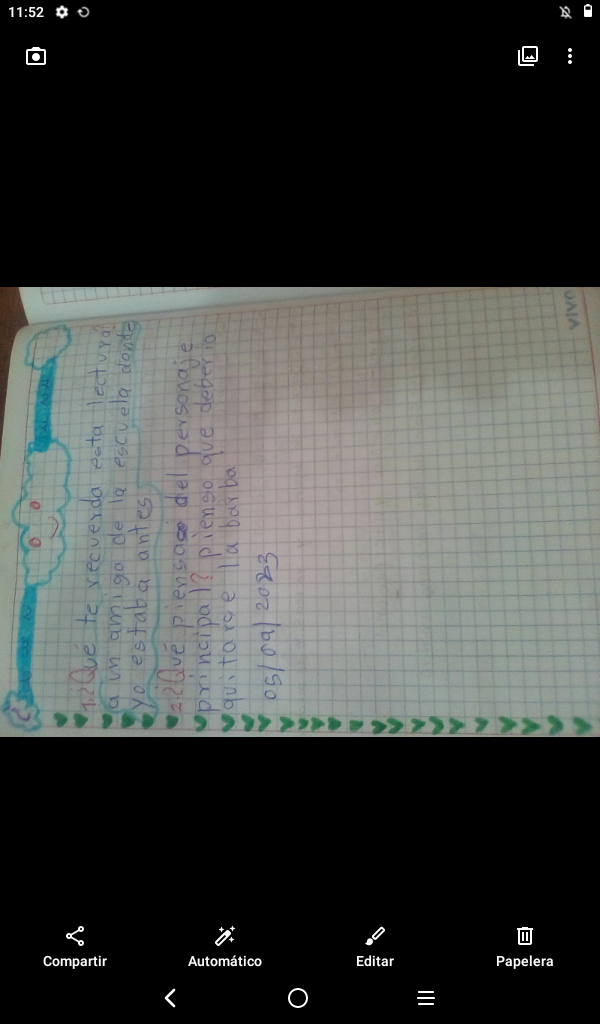 11:52
1.¿Qué te recuerda esta lectura?
a un amigo de la escuela donde
yo estaba antes
2.¿Qué piensas del personaje
principal? pienso que deberia
quitarse la barba
05/09/2023
vivo
Compartir
Automático
Editar
Papelera